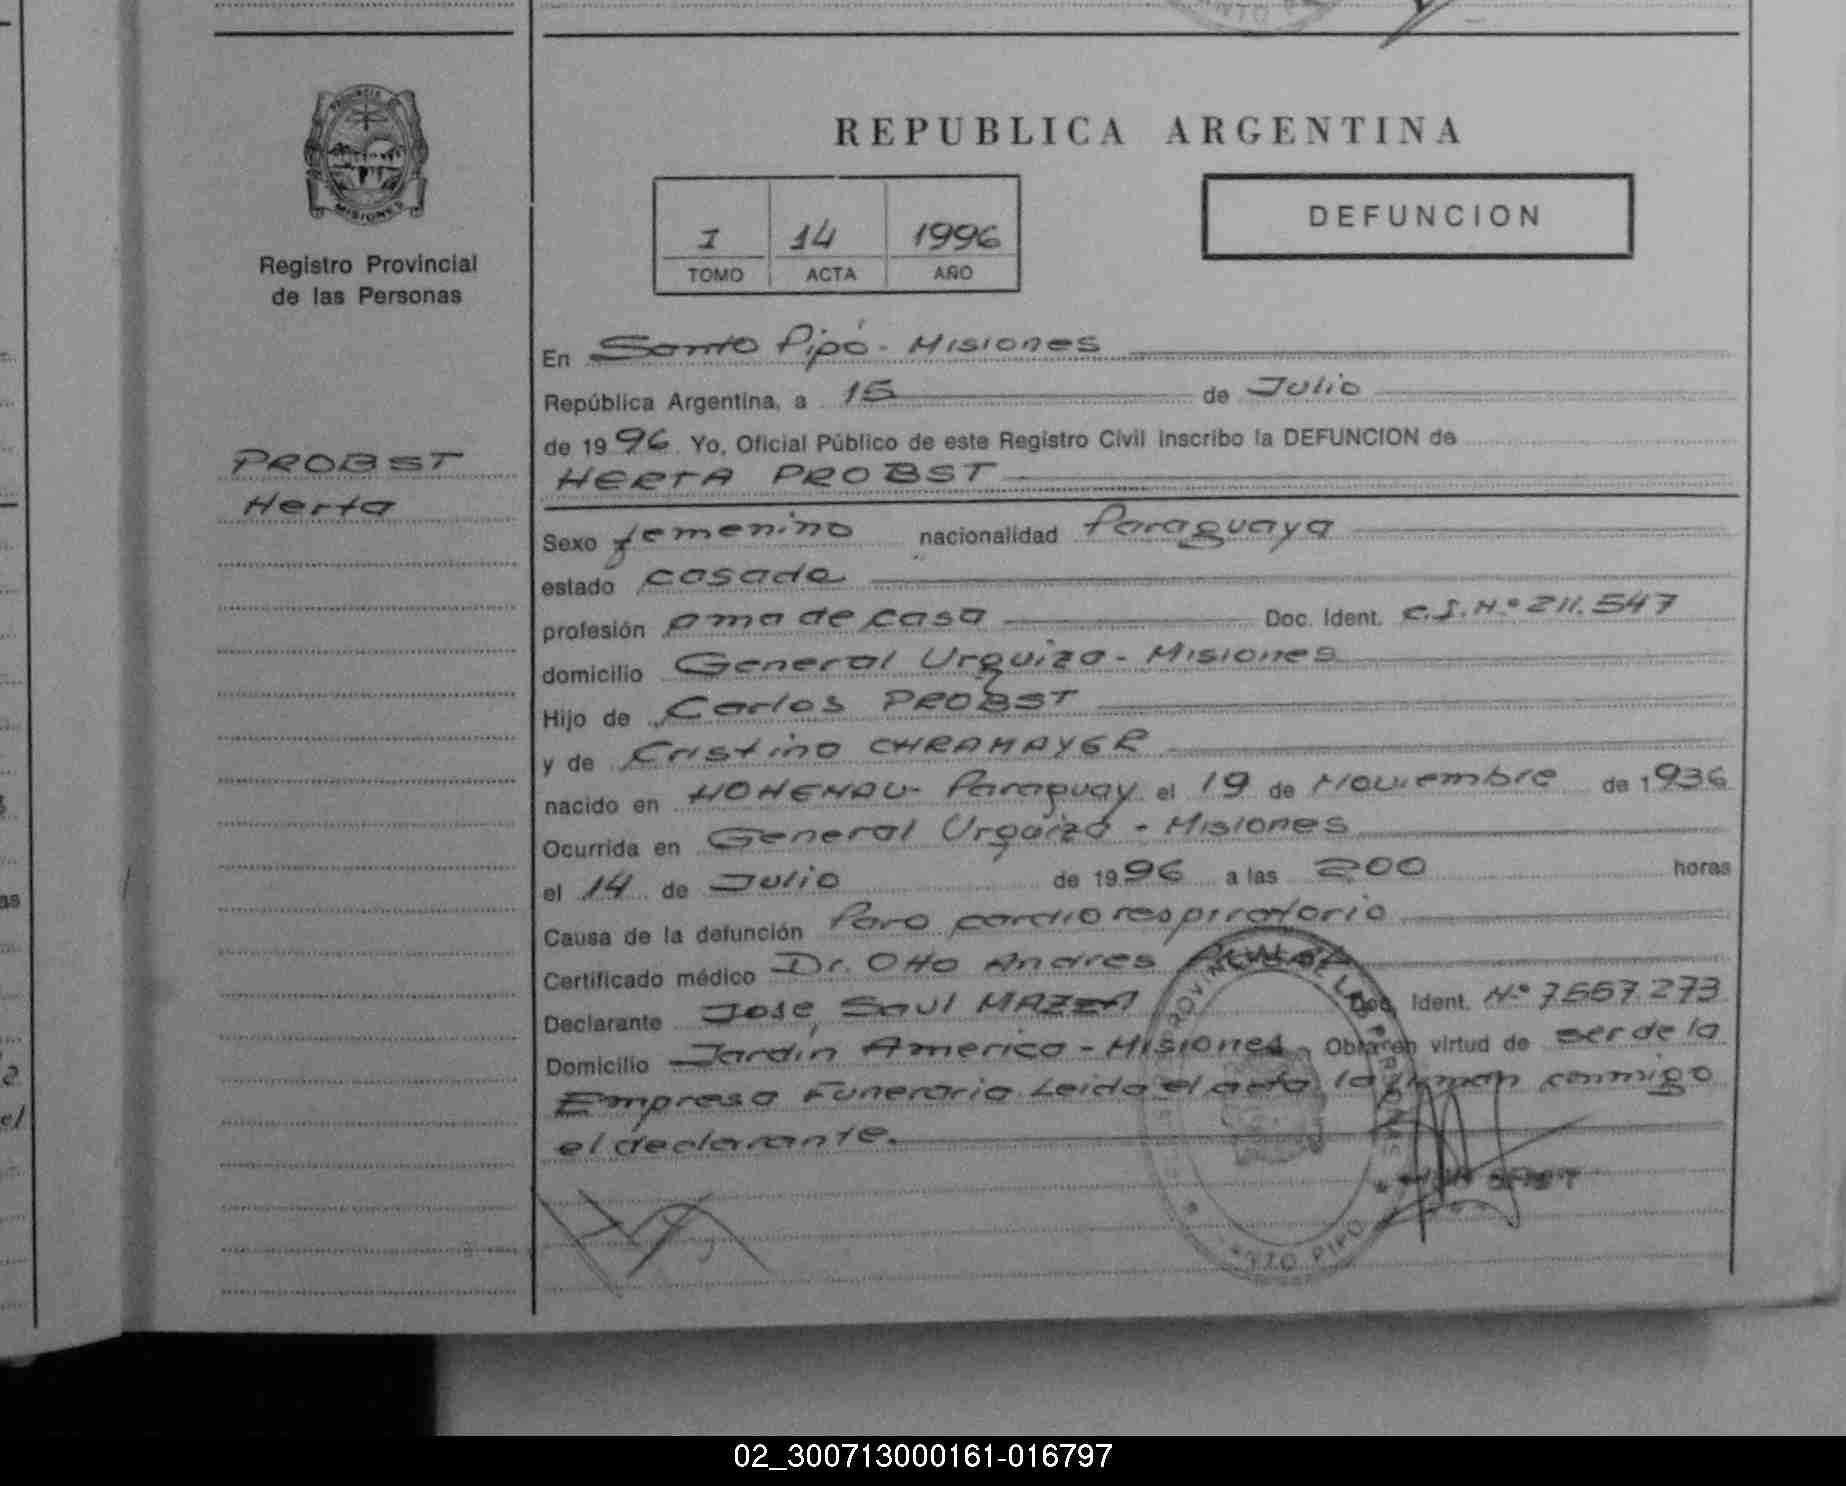 PROVINCIA DE
MISIONES
Registro Provincial
de las Personas
PROBST
Herta
REPUBLICA ARGENTINA
I 14 1996
TOMO ACTA AÑO
DEFUNCION
En Santo Pipó - Misiones
República Argentina, a 15 de Julio
de 1996. Yo, Oficial Público de este Registro Civil inscribo la DEFUNCION de
HERTA PROBST
Sexo femenino nacionalidad Paraguaya
estado casada
profesión ama de casa Doc. Ident. C.I.N.º 211.547
domicilio General Urquiza - Misiones
Hijo de Carlos PROBST
y de Cristina CHRAMAYER
nacido en HOHENAU - Paraguay el 19 de Noviembre de 1936
Ocurrida en General Urquiza - Misiones
el 14 de Julio de 1996 a las 200 horas
Causa de la defunción Paro cardiorespiratorio
Certificado médico Dr. Otto Andres
Declarante José Saul MAZZA Doc. Ident. Nº 7557273
Domicilio Jardín America - Misiones. Obra en virtud de ser de la
Empresa Funeraria. Leida el acta, la firman conmigo
el declarante.
PIPO
02_300713000161-016797